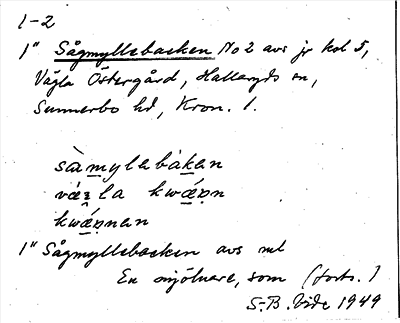 1-2
1" Sågmyllebacken No 2 avs jr kol 5,
Vägla Östergård, Hallaryds sn,
Sunnerbo hd, Kron. l.
sàmylebákan
kwǽɲnan
1" Sågmyllebacken avs ml
En mjölnare, som (forts.)
S-B. Vide 1949